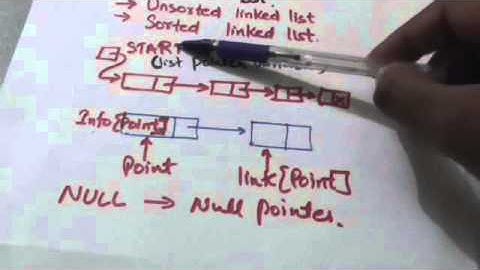 → Unsorted linked list
→ Sorted linked list.
START
(list pointer
Info[Point]
Point
link[Point]
NULL → Null pointer.